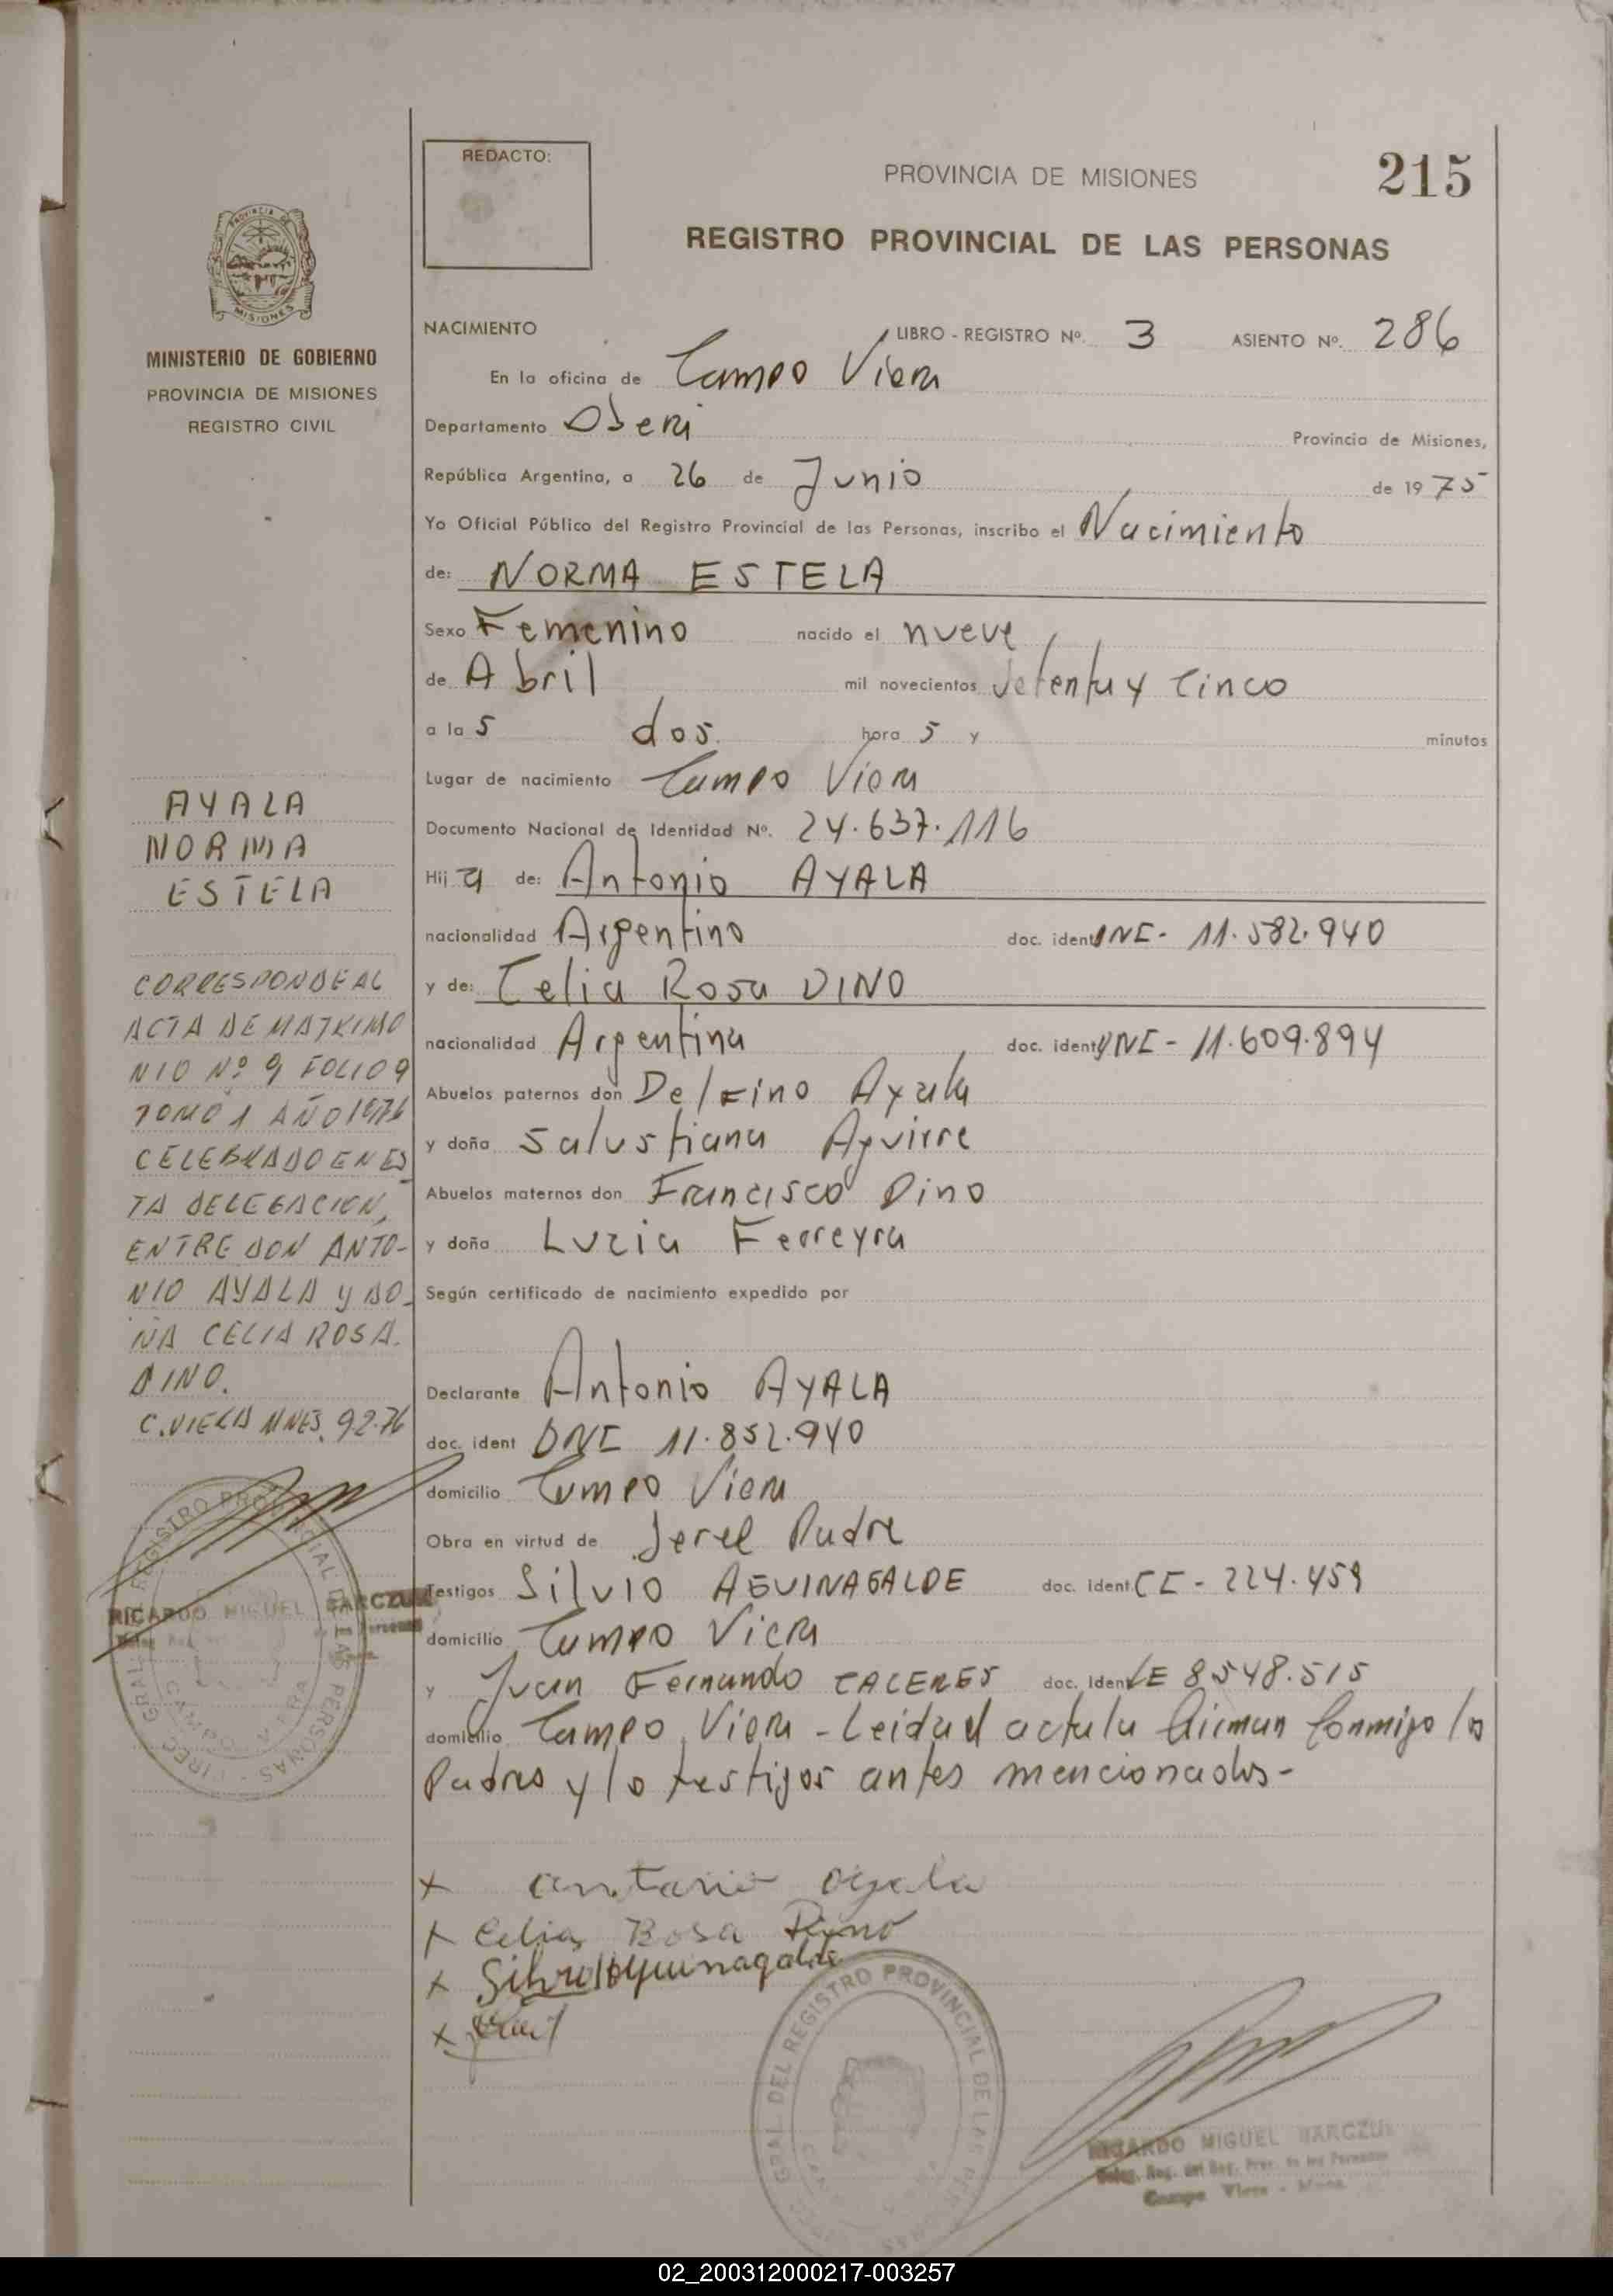 REDACTO:
PROVINCIA DE MISIONES
215
REGISTRO PROVINCIAL DE LAS PERSONAS
PROVINCIA DE
MISIONES
MINISTERIO DE GOBIERNO
PROVINCIA DE MISIONES
REGISTRO CIVIL
NACIMIENTO LIBRO - REGISTRO Nº. 3 ASIENTO Nº. 286
En la oficina de Campo Viera
Departamento Oberá Provincia de Misiones,
República Argentina, a 26 de Junio de 1975
Yo Oficial Público del Registro Provincial de las Personas, inscribo el Nacimiento
de: NORMA ESTELA
Sexo Femenino nacido el nueve
de Abril mil novecientos setenta y cinco
a la s dos hora s y minutos
Lugar de nacimiento Campo Viera
Documento Nacional de Identidad Nº. 24.637.116
Hij a de: Antonio AYALA
nacionalidad Argentino doc. ident DNI - 11.582.940
y de: Celia Rosa DINO
nacionalidad Argentina doc. ident DNI - 11.609.894
Abuelos paternos don Delfino Ayala
y doña Salustiana Aguirre
Abuelos maternos don Francisco Dino
y doña Luzia Ferreyra
Según certificado de nacimiento expedido por
Declarante Antonio AYALA
doc. ident DNI 11.852.940
domicilio Campo Viera
Obra en virtud de Ser el Padre
Testigos Silvio AGUINAGALDE doc. ident. CI - 224.459
domicilio Campo Viera
y Juan Fernando CACERES doc. ident LE 8.548.515
domicilio Campo Viera - Leida el acta la firman Conmigo los
Padres y lo testigos antes mencionados -
x antonio ayala
x Celia Rosa Dino
x Silvio Aguinagalde
x
AYALA
NORMA
ESTELA
CORRESPONDE AL
ACTA DE MATRIMO
NIO Nº 9 FOLIO 9
TOMO 1 AÑO 1976
CELEBRADO EN ES
TA DELEGACION,
ENTRE DON ANTO-
NIO AYALA y DO-
ÑA CELIA ROSA
DINO.
C. VIERA MNES. 9.2.76
RICARDO MIGUEL BARCZUK
GRAL. DEL REGISTRO PROVINCIAL DE LAS PERSONAS
CAMPO VIERA
GRAL. DEL REGISTRO PROVINCIAL DE LAS PERSONAS
RICARDO MIGUEL BARCZUK
Deleg. Reg. del Reg. Prov. de las Personas
Campo Viera - Mnes.
02_200312000217-003257